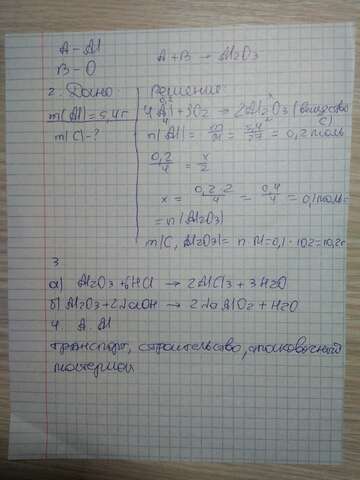 А - Al
В - О
А + В → Al2O3
2. Дано:
m(Al) = 5,4 г
m(C) - ?
Решение:
0,2 x
4Al + 3O2 → 2Al2O3 (вещество C)
4 2
n(Al) = m/M = 5,4/27 = 0,2 моль
0,2/4 = x/2
x = 0,2·2/4 = 0,4/4 = 0,1 моль =
= n(Al2O3)
m(C, Al2O3) = n·M = 0,1·102 = 10,2г
3
а) Al2O3 + 6HCl → 2AlCl3 + 3H2O
б) Al2O3 + 2NaOH → 2NaAlO2 + H2O
4. А. Al
транспорт, строительство, упаковочный
материал